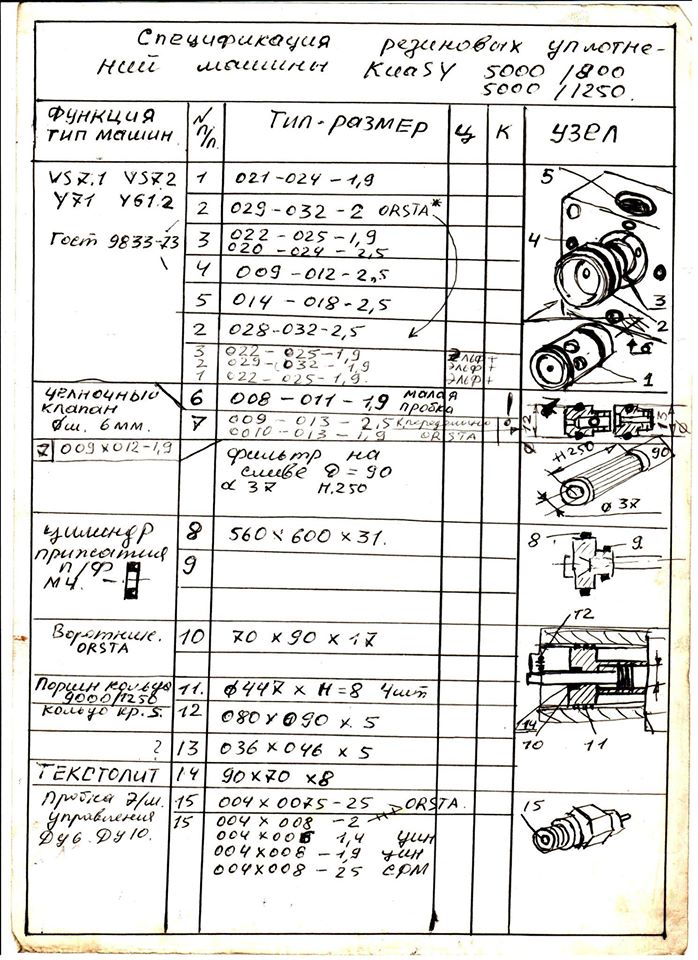 Спецификация резиновых уплотне-
ний машины KuaSY 5000/800
5000/1250.
Функция тип машин
N п/п.
Тип-размер
Ц
К
узел
VS7.1 VS7.2
Y71 Y61.2
Гост 9833-73
1 021-024-1,9
2 029-032-2 ORSTA*
3 022-025-1,9
020-024-2,5
4 009-012-2,5
5 014-018-2,5
2 028-032-2,5
3 022-025-1,9 Эльф+
2 029-032-1,9 Эльф+
1 022-025-1,9. Эльф+
5
4
3
2
6
1
челночный
клапан
Øш. 6мм.
6 008-011-1,9 малая
пробка
7 009-013-2,5
0010-013-1,9 ORSTA
7 009x012-1,9
фильтр на
сливе D=90
d 37 H.250
H250
90
ø 37
цилиндр
прижатия
п/ф
М4.
8 560x600x31.
9
8
9
Воротник.
ORSTA
10 70x90x17
Поршн кольцо
9000/1250
11. ø447 x H=8 4шт
кольцо кр. 5.
12 080x090x5
? 13 036x046x5
T2
14
10
11
ТЕКСТОЛИТ 14 90x70x8
Пробка Э/м.
управления
Ду6. Ду10.
15 004x0075-25 ORSTA.
15 004x008-2
004x006 1,4 цин
004x008-1,9 цин
004x008-25 СФМ
15